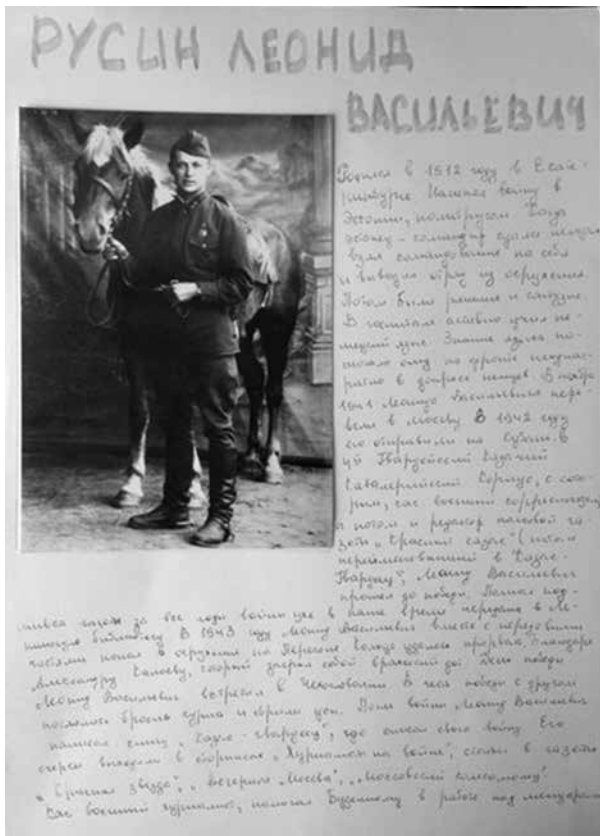 РУСИН ЛЕОНИД
ВАСИЛЬЕВИЧ
Родился в 1912 году в Екате-
Начинал войну в
Эстонии, политруком. Когда
эстонец - командир сдался немцам
взял командование на себя
и выводил отряд из окружения.
Потом были ранения и
В госпитале активно учил не-
мецкий язык. Знание языка по-
могало ему на фронте неоднок-
ратно в допросе немцев. В ноябре
1941 Леонида Васильевича пере-
вели в Москву. В 1942 году
его отправили на Кубань. В
Гвардейский Казачий
Кавалерийский Корпус, с кото-
рым, как военный корреспондент,
а потом и редактор полковой га-
зеты "Красный казак" (потом
переименованный в "Казак-
Гвардеец", Леонид Васильевич
прошел до победы. Полная под-
шивка газет за все годы войны уже в наше время передана в Ле-
нинскую библиотеку. В 1943 году Леонид Васильевич вместе с передовыми
частями попал в окружение на Перекопе. Кольцо удалось прорвать, благодаря
Александру который день победы
Леонид Васильевич встретил в Чехословакии. В честь победы с другом
поклялись бросить курить и После войны Леонид Васильевич
написал книгу "Казак-гвардеец", где описал свою войну. Его
очерки выходили в сборниках "Журналисты на войне", статьи в газетах
"Красная звезда", "Вечерняя Москва", "Московский комсомолец".
Как военный журналист, помогал Буденному в работе над мемуарами